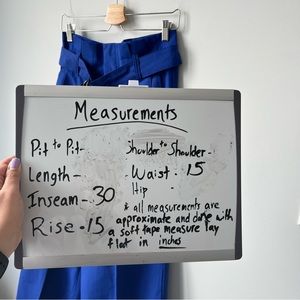 Measurements
Pit to Pit-
Length -
Inseam - 30
Rise - 15
Shoulder to Shoulder -
- Waist - 15
Hip -
* all measurements are
approximate and done with
a soft tape measure lay
flat in inches